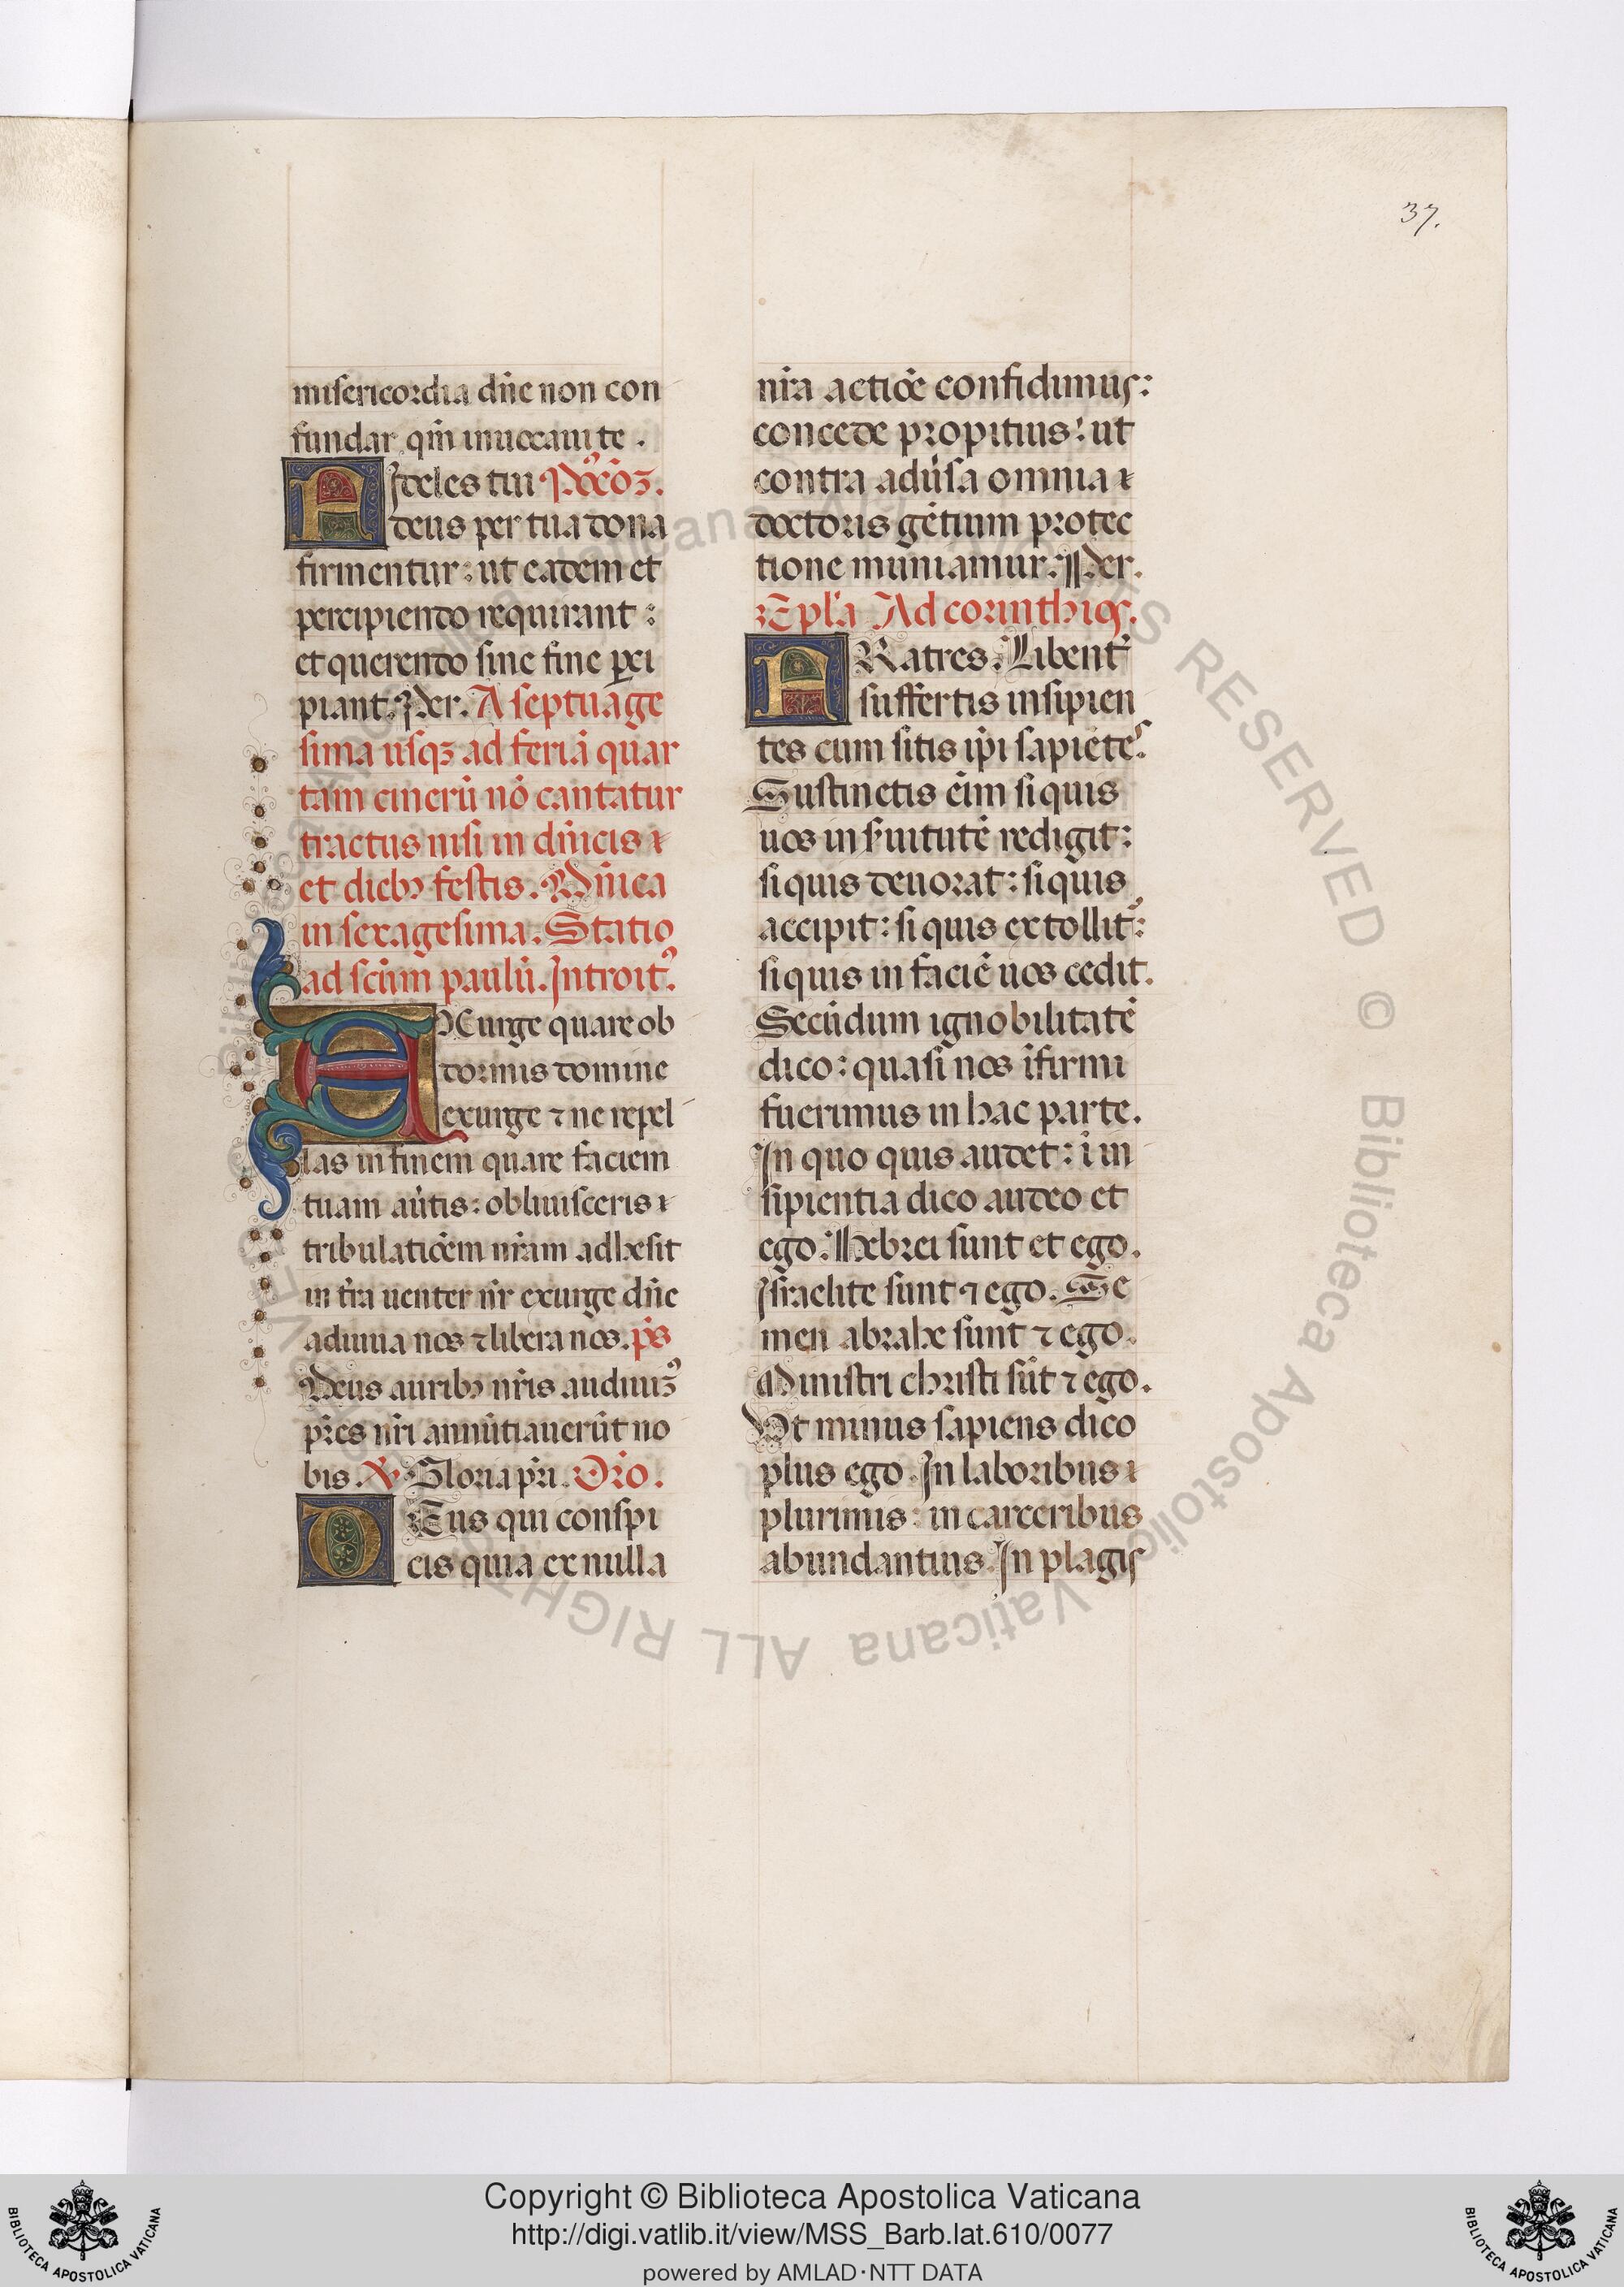 37.
misericordia dñe non con
fundar qm̃ inuocaui te.
FIdeles tui Postcoꝫ.
deus per tua dona
firmentur: ut eadem et
percipiendo requirant:
et querendo sine fine ꝑci
piant. Per. A septuage
sima usqꝫ ad feriã quar
tam cinerũ nõ cantatur
tractus nisi in dñicis ⁊
et diebꝫ festis. Dñica
in sexagesima. Statio
ad scũm paulũ. Introitꝰ.
EXurge quare ob
dormis domine
exurge ⁊ ne repel
las in finem quare faciem
tuam aũtis: obliuisceris ⁊
tribulatiõem nr̃am adhesit
in tr̃a uenter nr̃ exurge dñe
adiuua nos ⁊ libera nos. p̃s
Deus auribꝫ nr̃is audiuimꝰ
pr̃es nr̃i annũtiauerũt no
bis. ℣ Gloria pr̃i. Or̃o.
DEus qui conspi
cis quia ex nulla
nr̃a actiõe confidimus:
concede propitius: ut
contra adũsa omnia ⁊
doctoris gẽtium protec
tione muniamur. Per.
Epl̃a Ad corinthios.
FRatres. Libent̃
suffertis insipien
tes cum sitis ip̃i sapiẽtes.
Sustinetis ẽim si quis
uos in s̃uitutẽ redigit:
si quis deuorat: si quis
accipit: si quis extollitꝰ:
si quis in faciẽ uos cedit.
Secũdum ignobilitatẽ
dico: quasi nos ĩfirmi
fuerimus in hac parte.
In quo quis audet: ĩ in
sipientia dico audeo et
ego. Hebrei sunt et ego.
Israelite sunt ⁊ ego. Se
men abrahe sunt ⁊ ego.
Ministri christi sũt ⁊ ego.
Ut minus sapiens dico
plus ego. In laboribus ĩ
plurimis: in carceribus
abundantius. In plagis
Copyright © Biblioteca Apostolica Vaticana
http://digi.vatlib.it/view/MSS_Barb.lat.610/0077
powered by AMLAD·NTT DATA
BIBLIOTECA APOSTOLICA VATICANA
BIBLIOTECA APOSTOLICA VATICANA